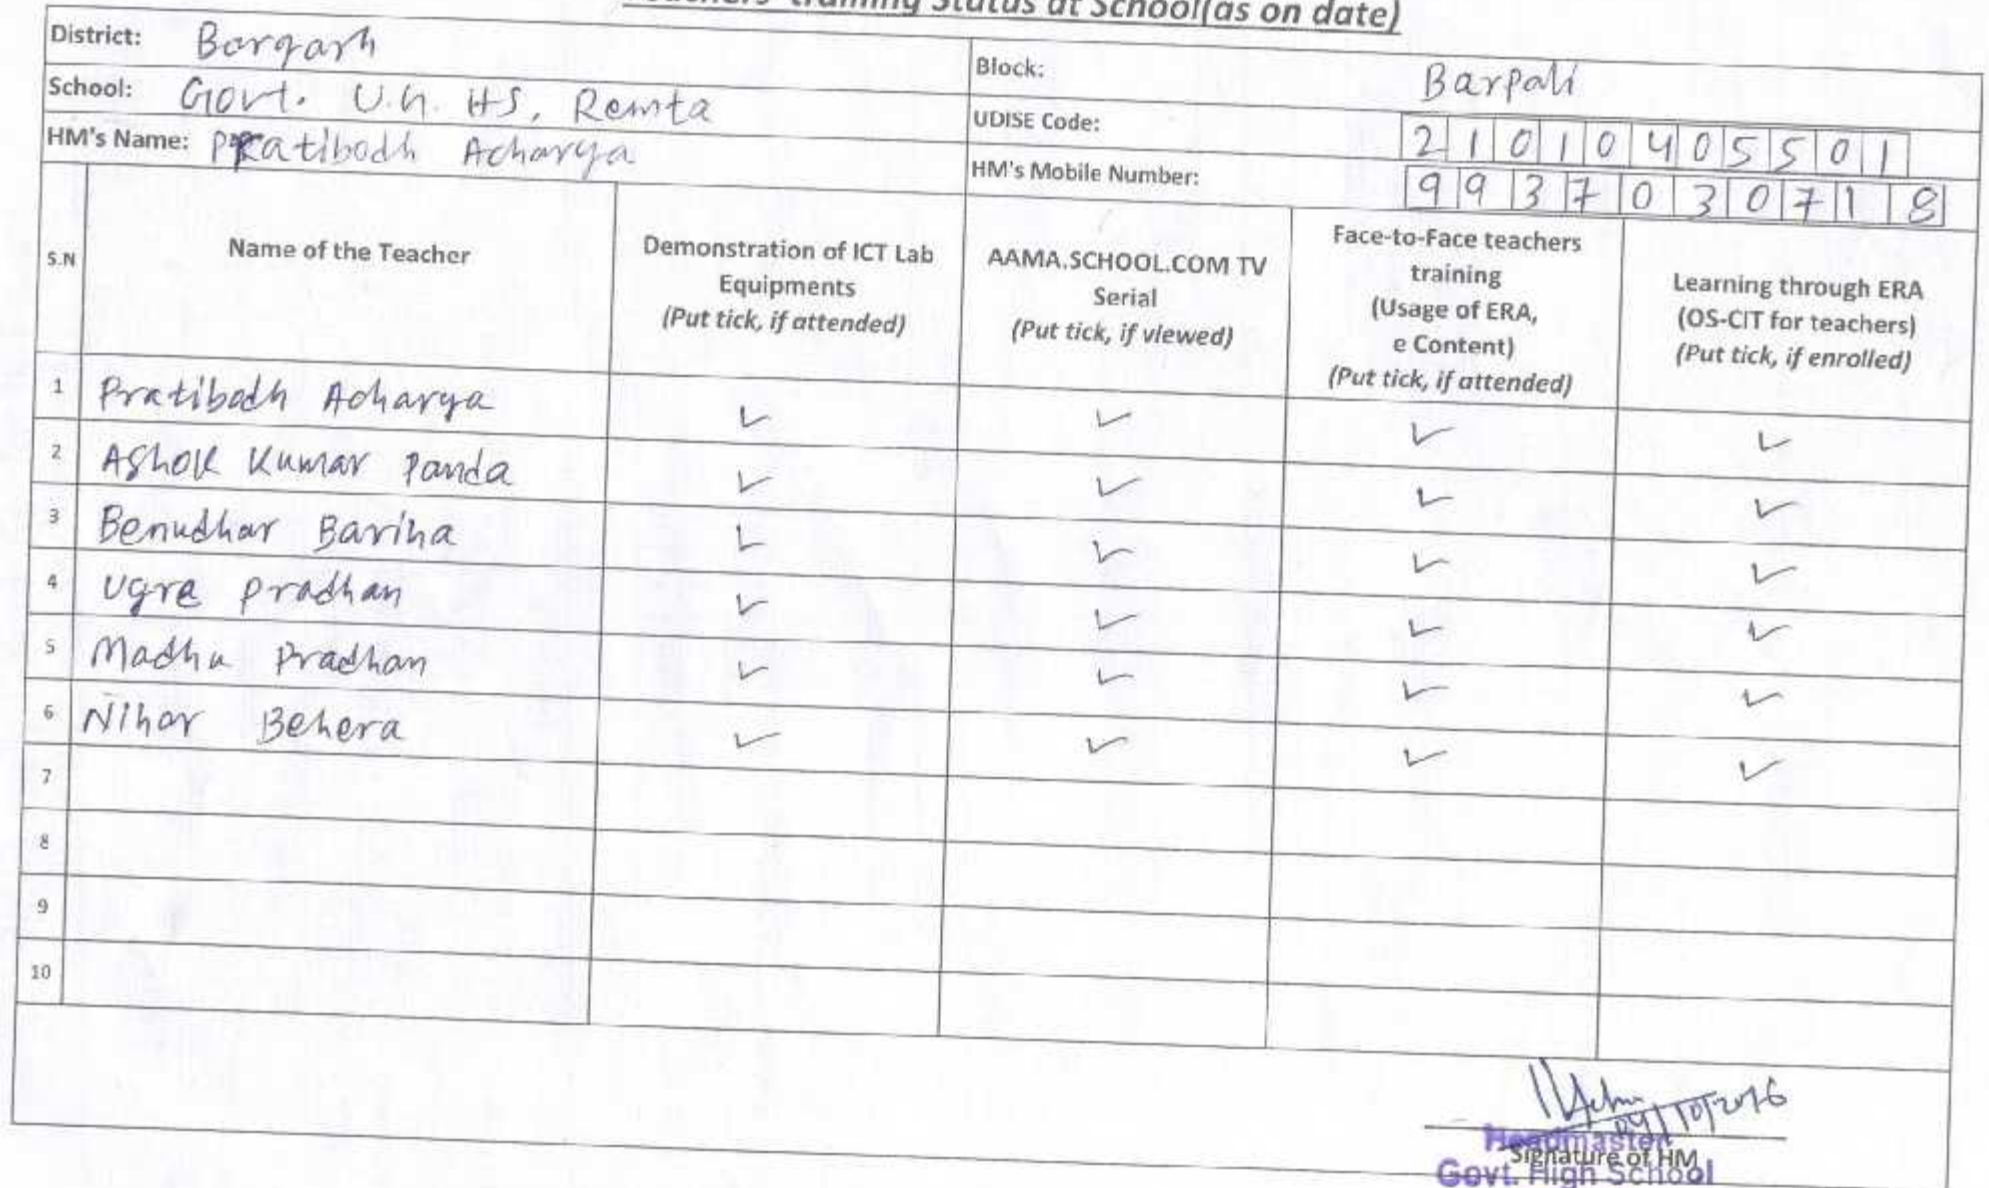 Training Status at School(as on date)
District: Borgarh
Block: Barpali
School: Govt. U.G. HS, Remta
UDISE Code: 21010405501
HM's Name: Pratibodh Acharya
HM's Mobile Number: 9937030718
S.N
Name of the Teacher
Demonstration of ICT Lab
Equipments
(Put tick, if attended)
AAMA.SCHOOL.COM TV
Serial
(Put tick, if viewed)
Face-to-Face teachers
training
(Usage of ERA,
e Content)
(Put tick, if attended)
Learning through ERA
(OS-CIT for teachers)
(Put tick, if enrolled)
1 Pratibodh Acharya ✓ ✓ ✓ ✓
2 Ashok Kumar Panda ✓ ✓ ✓ ✓
3 Benudhar Bariha ✓ ✓ ✓ ✓
4 Ugra Pradhan ✓ ✓ ✓ ✓
5 Madhu Pradhan ✓ ✓ ✓ ✓
6 Nihar Behera ✓ ✓ ✓ ✓
7
8
9
10
/10/2016
Headmaster
Signature of HM
Govt. High School